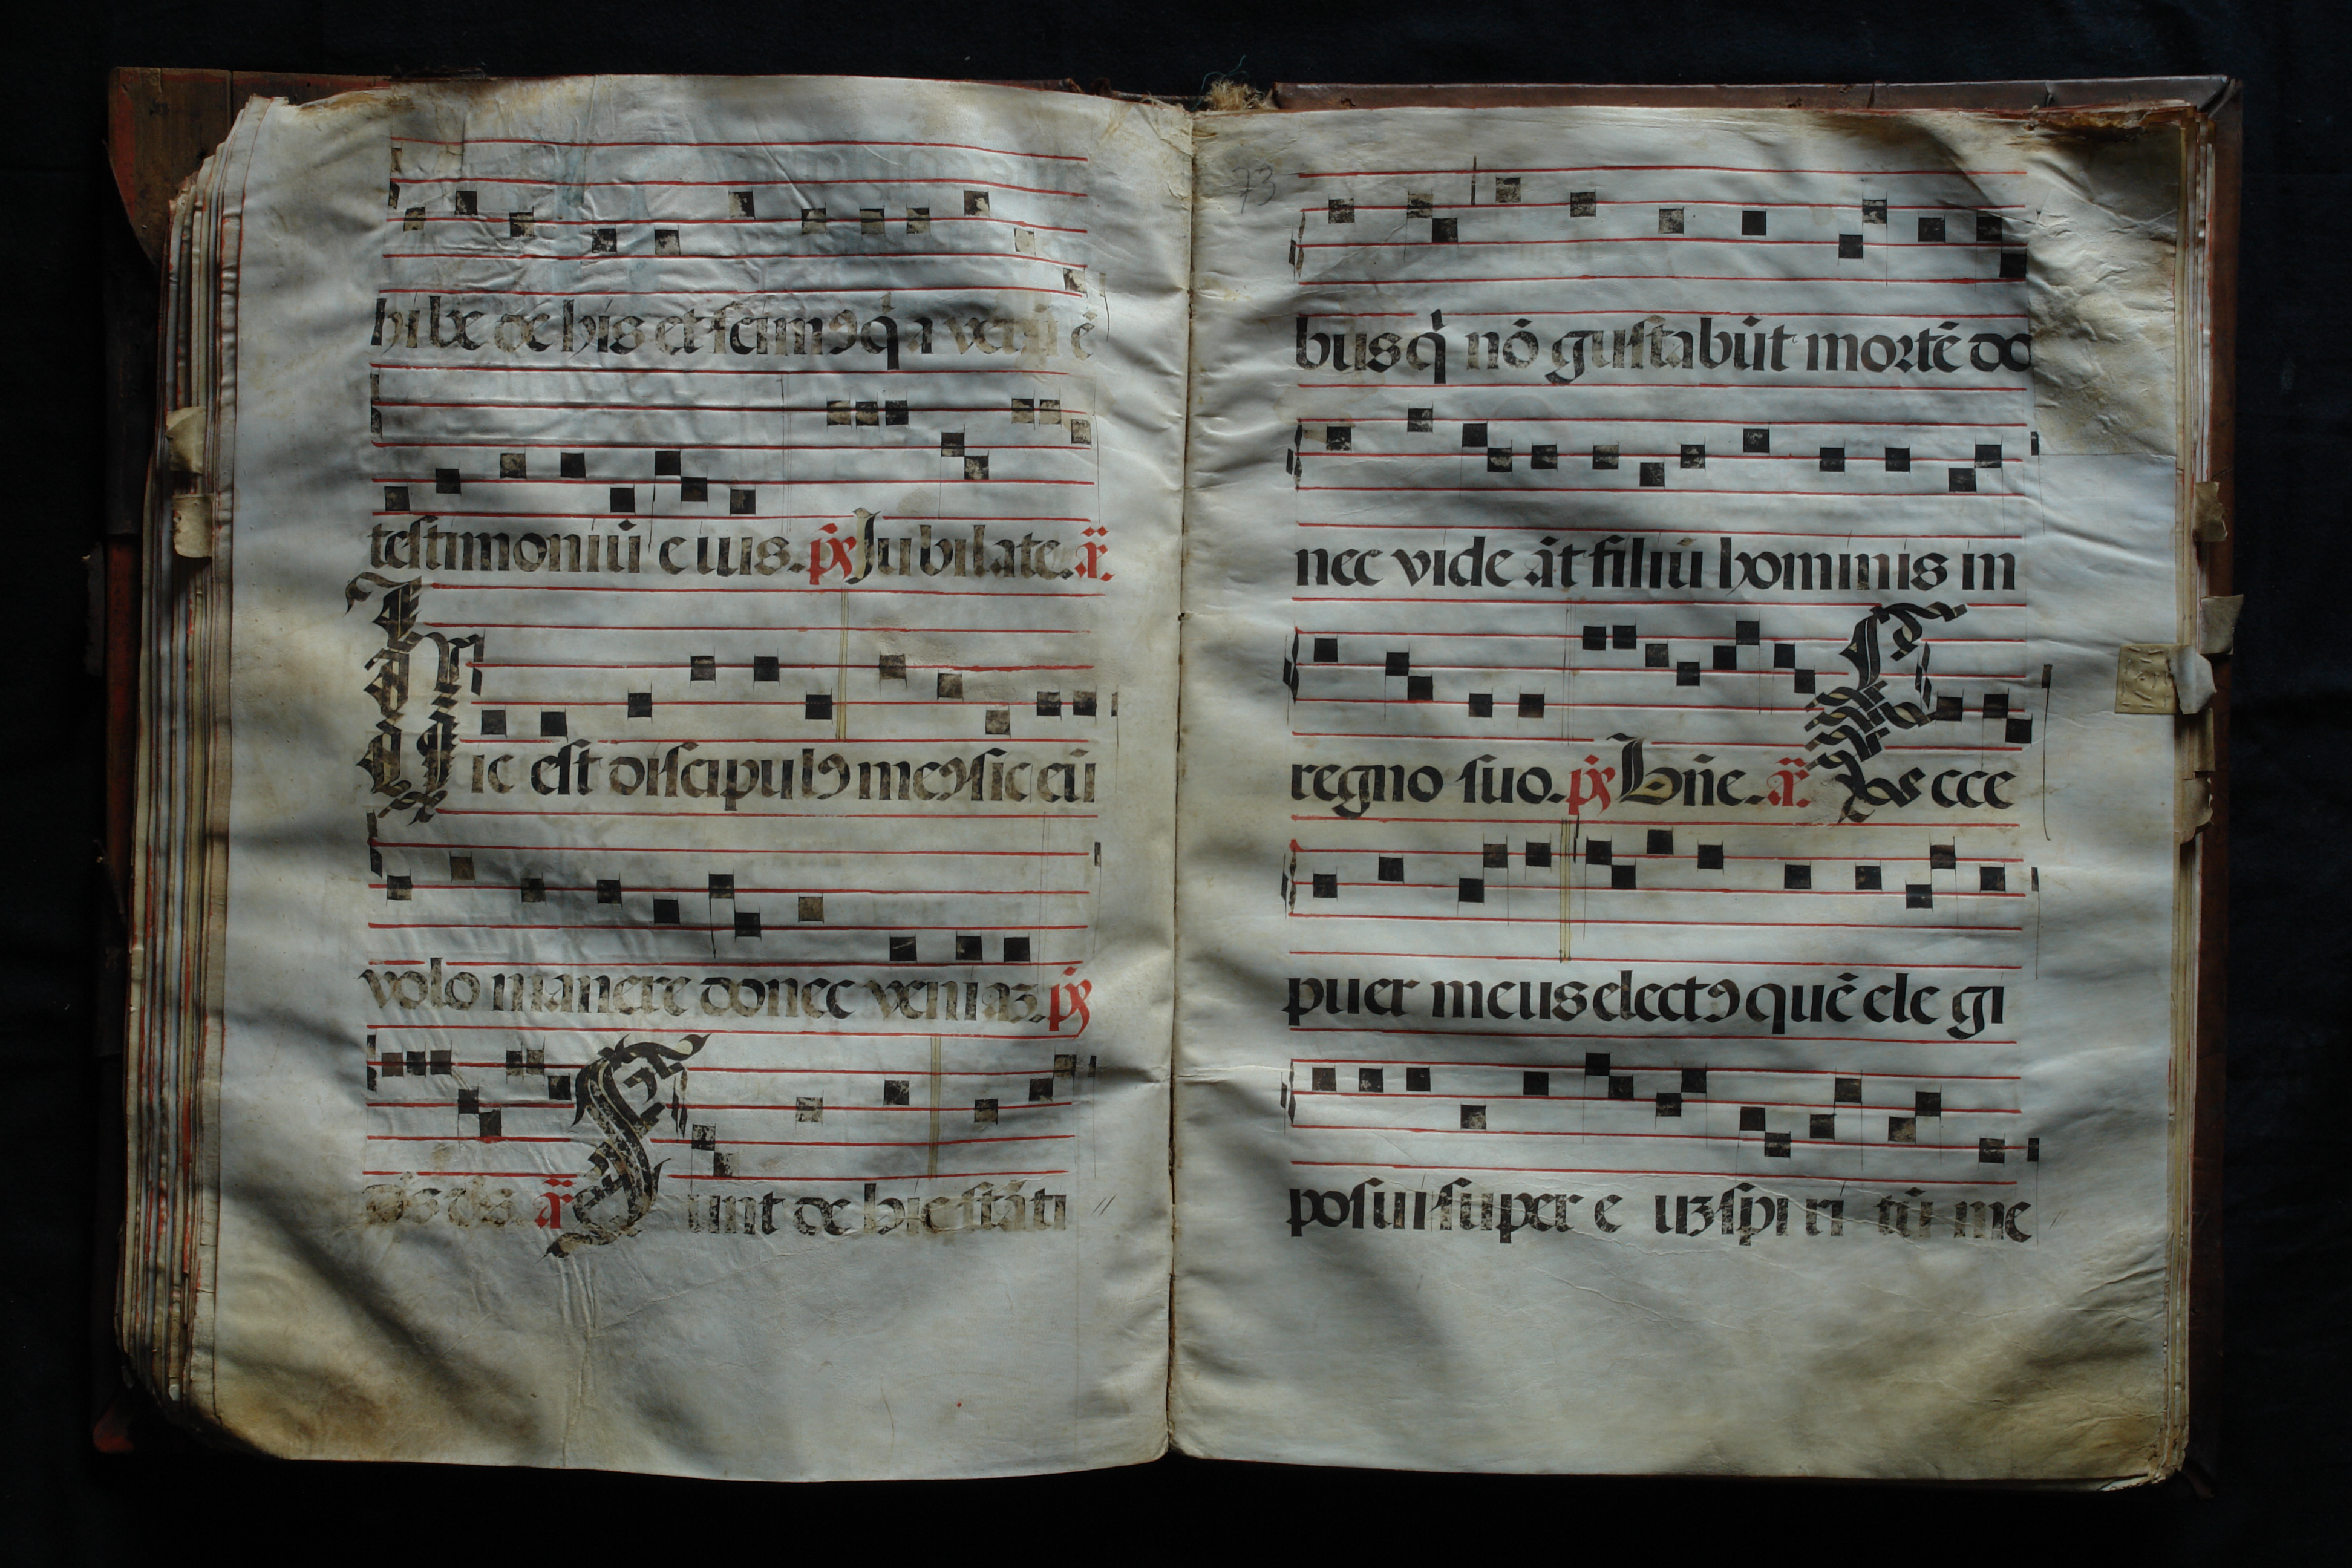 hibe de his et scimꝯ q̇a verū ē
testimoniū eius. p̄s Jubilate. ä.
Hic est discipulꝯ meꝯ sic eū
volo manere donec veniaꝫ. p̄s
ä Sunt de hic stāti
73
busq̇ nō gustabūt mortē do
nec videāt filiū hominis in
regno suo. p̄s Dn̄e. ä. Ecce
puer meus electꝯ quē elegi
posui super euꝫ spiritū me